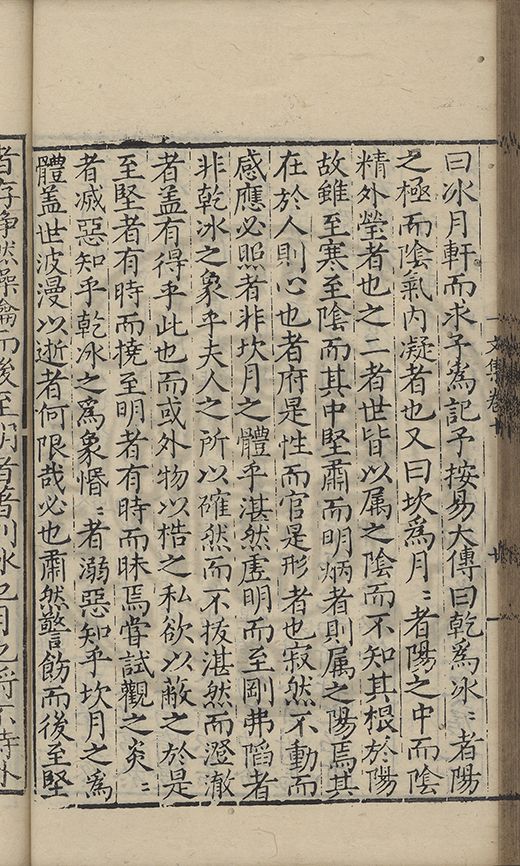 曰冰月軒而求予為記予按易大傳曰乾為冰〻者陽
之極而陰氣內凝者也又曰坎為月〻者陽之中而陰
精外瑩者也之二者世皆以属之陰而不知其根於陽
故雖至寒至陰而其中堅肅而明炳者則属之陽焉其
在於人則心也者府是性而官是形者也寂然不動而
感應必照者非坎月之體乎湛然虛明而至剛弗䧟者
非乾冰之象乎夫人之所以確然而不拔湛然而澄澈
者盖有得乎此也而或外物以梏之私欲以蔽之於是
至堅者有時而撓至明者有時而昧焉嘗試觀之炎〻
者滅惡知乎乾冰之為象惛〻者溺惡知乎坎月之為
體盖世波漫以逝者何限哉必也肅然警飭而後至堅
者存
而後至明者
冰也月也
文集卷十